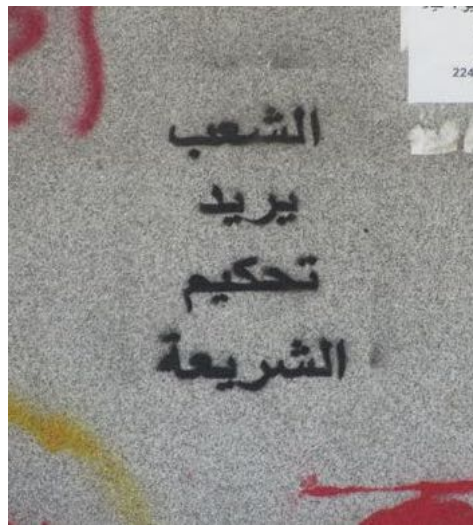 224
الشعب
يريد
تحكيم
الشريعة